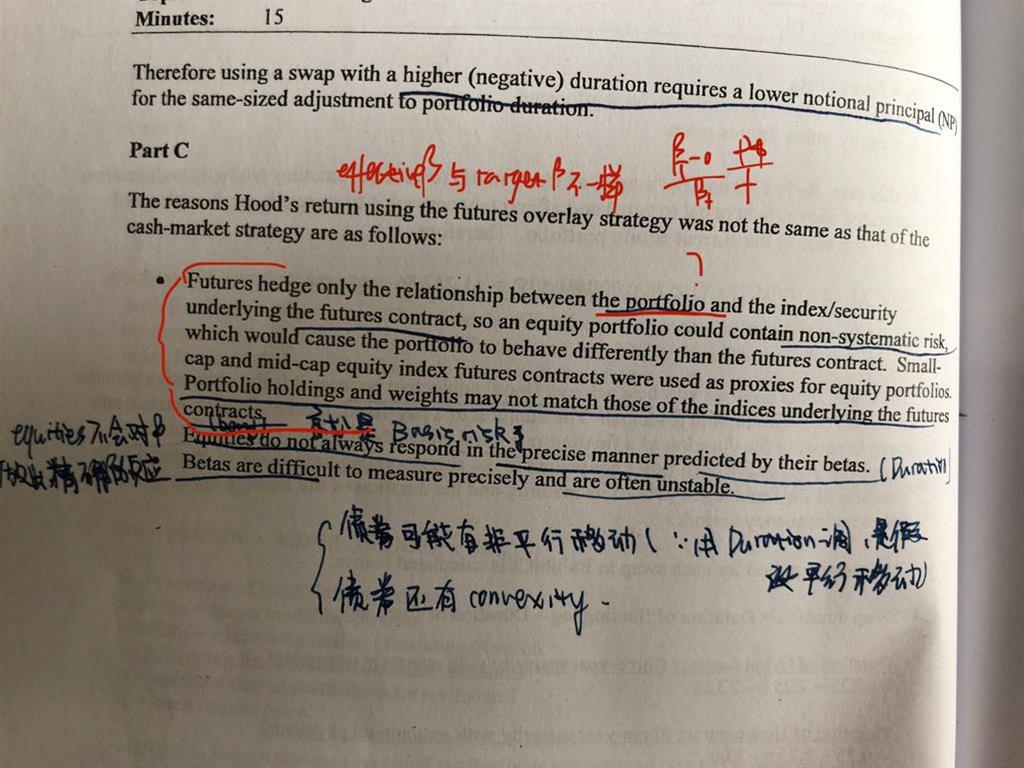 Minutes: 15
Therefore using a swap with a higher (negative) duration requires a lower notional principal (NP)
for the same-sized adjustment to portfolio duration.
Part C
effective β 与 target β 不一样
The reasons Hood's return using the futures overlay strategy was not the same as that of the
cash-market strategy are as follows:
?
• Futures hedge only the relationship between the portfolio and the index/security
underlying the futures contract, so an equity portfolio could contain non-systematic risk,
which would cause the portfolio to behave differently than the futures contract. Small-
cap and mid-cap equity index futures contracts were used as proxies for equity portfolios.
Portfolio holdings and weights may not match those of the indices underlying the futures
contracts.
(bond) Basis risk
equities不会对β
Equities do not always respond in the precise manner predicted by their betas. (Duration)
做出精确的反应
Betas are difficult to measure precisely and are often unstable.
债券可能有非平行移动(∵用Duration调,是假
设平行移动)
债券还有convexity.